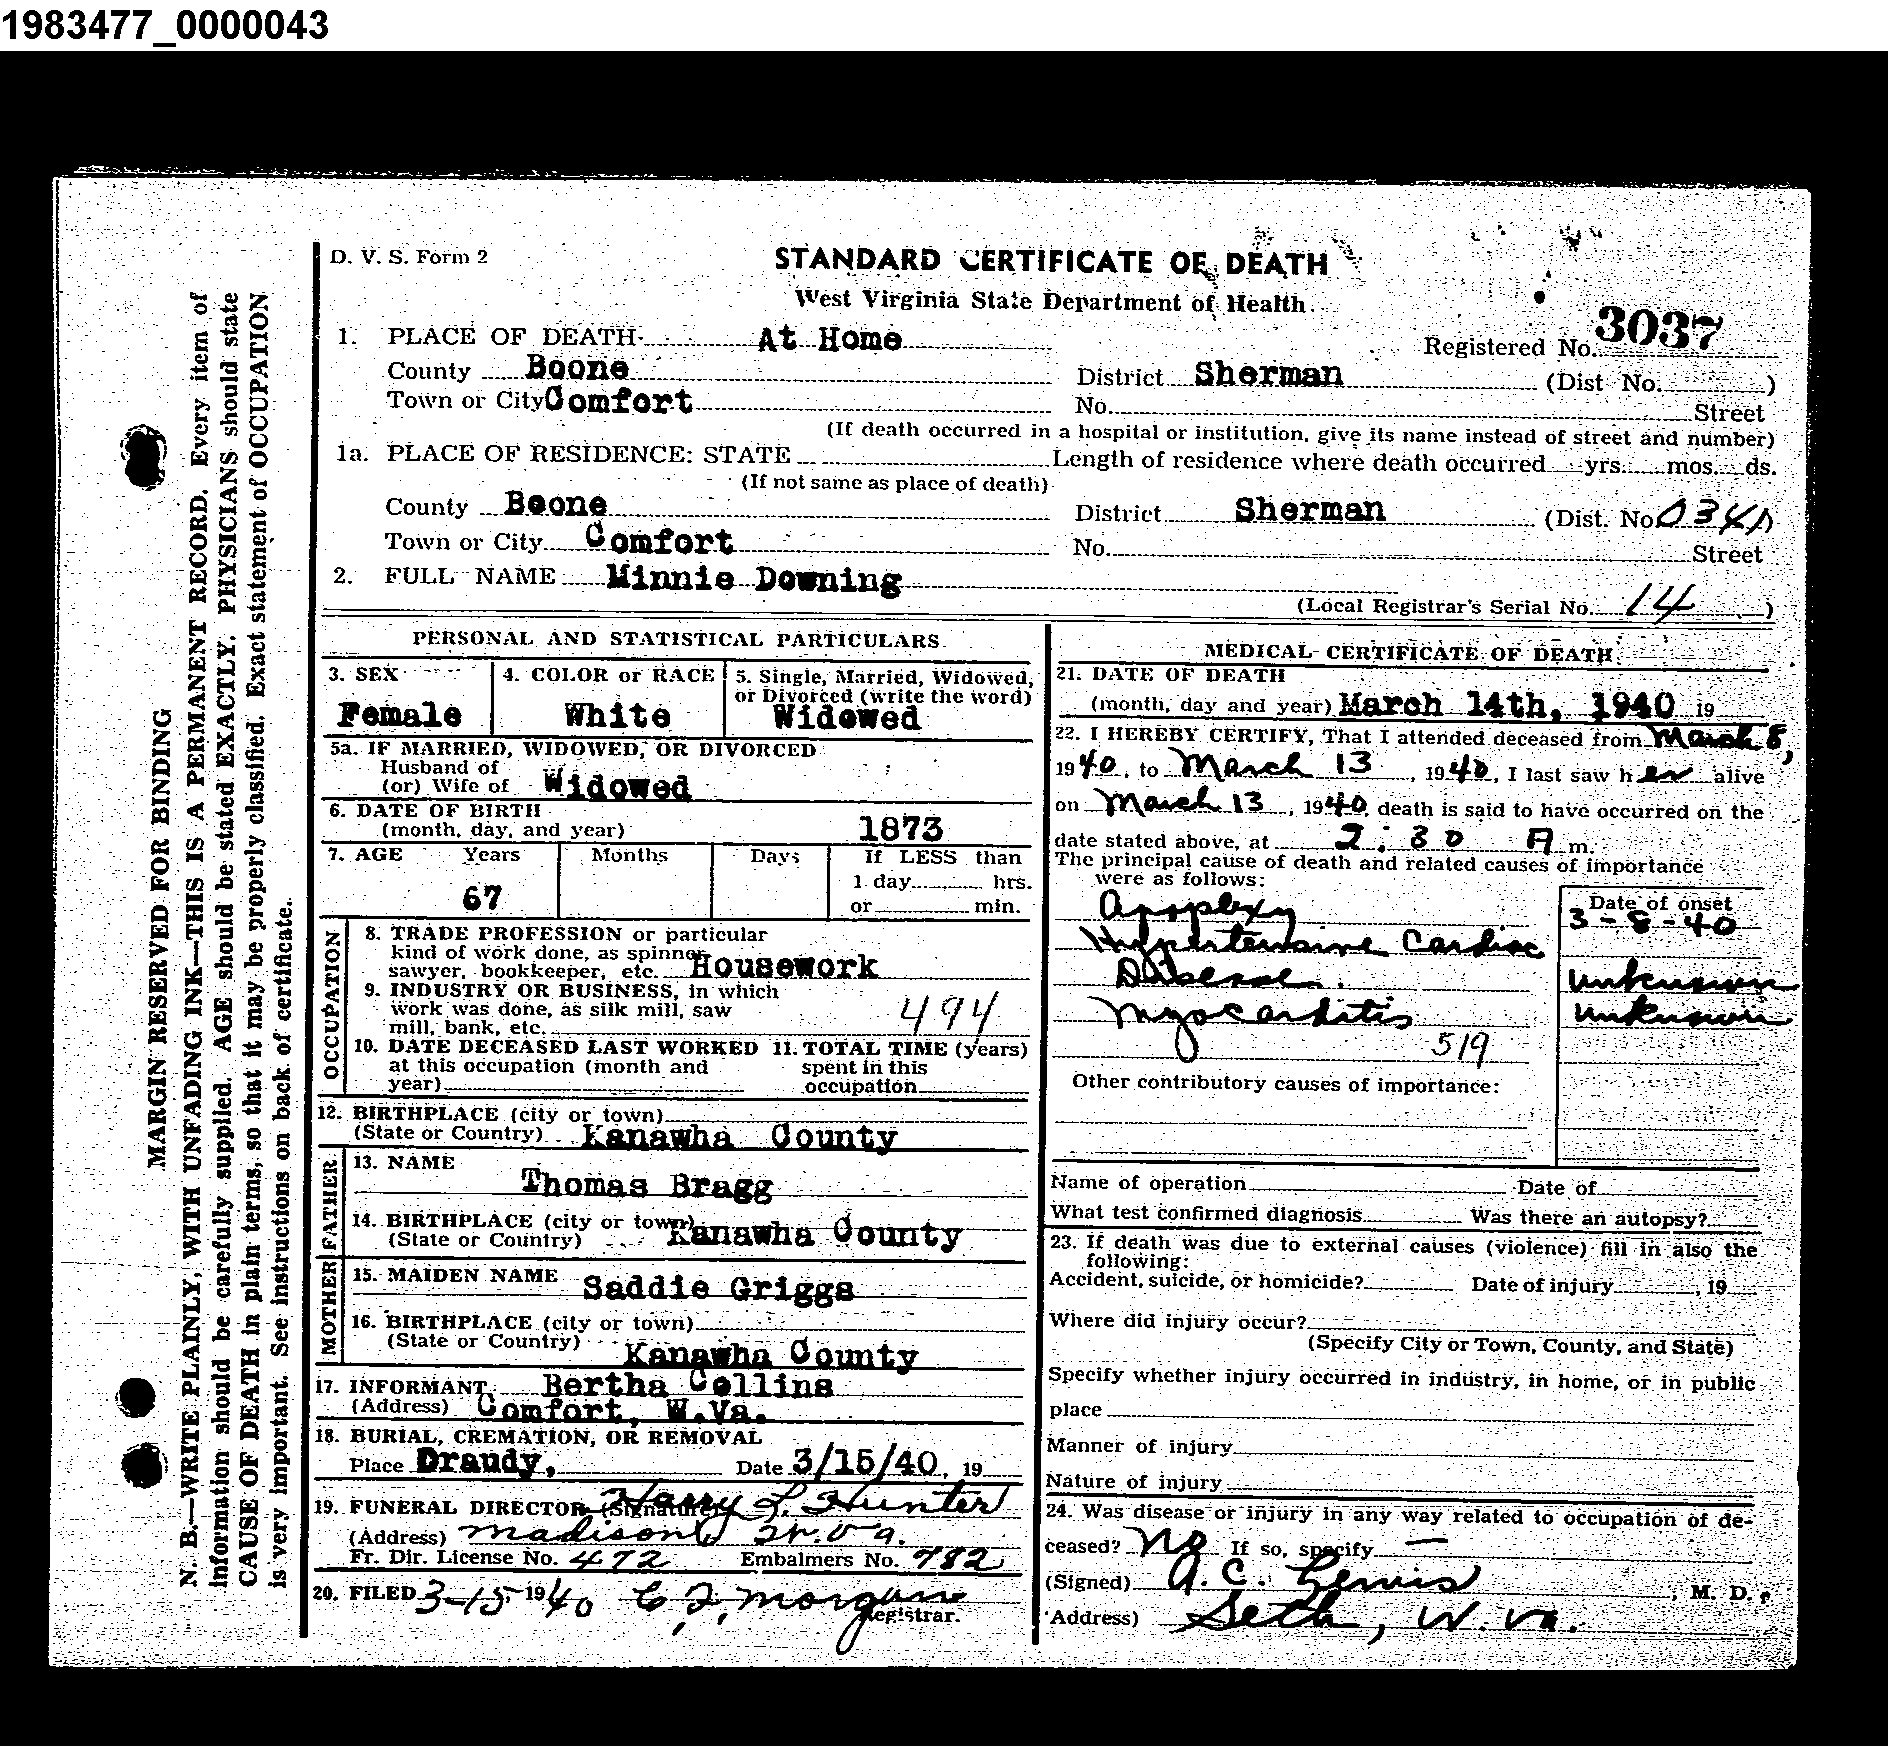 1983477_0000043
D. V. S. Form 2
STANDARD CERTIFICATE OF DEATH
West Virginia State Department of Health
1. PLACE OF DEATH At Home
Registered No. 3037
County Boone District Sherman (Dist No. )
Town or City Comfort No. Street
(If death occurred in a hospital or institution, give its name instead of street and number)
1a. PLACE OF RESIDENCE: STATE Length of residence where death occurred yrs. mos. ds.
(If not same as place of death)
County Boone District Sherman (Dist. No. 0341)
Town or City Comfort No. Street
2. FULL NAME Minnie Downing
(Local Registrar's Serial No. 14 )
PERSONAL AND STATISTICAL PARTICULARS
3. SEX
Female
4. COLOR or RACE
White
5. Single, Married, Widowed,
or Divorced (write the word)
Widowed
5a. IF MARRIED, WIDOWED, OR DIVORCED
Husband of
(or) Wife of Widowed
6. DATE OF BIRTH
(month, day, and year) 1873
7. AGE Years Months Days If LESS than
1 day hrs.
67 or min.
OCCUPATION
8. TRADE PROFESSION or particular
kind of work done, as spinner
sawyer, bookkeeper, etc. Housework
9. INDUSTRY OR BUSINESS, in which
work was done, as silk mill, saw
mill, bank, etc. 494
10. DATE DECEASED LAST WORKED
at this occupation (month and
year)
11. TOTAL TIME (years)
spent in this
occupation
12. BIRTHPLACE (city or town)
(State or Country) Kanawha County
FATHER
13. NAME
Thomas Bragg
14. BIRTHPLACE (city or town)
(State or Country) Kanawha County
MOTHER
15. MAIDEN NAME Saddie Griggs
16. BIRTHPLACE (city or town)
(State or Country)
Kanawha County
17. INFORMANT Bertha Collins
(Address) Comfort, W.Va.
18. BURIAL, CREMATION, OR REMOVAL
Place Draudy, Date 3/15/40, 19
19. FUNERAL DIRECTOR (Signature) Harry L. Hunter
(Address) Madison W. Va.
Fr. Dir. License No. 472 Embalmers No. 782
20. FILED 3-15, 1940 C. F. Morgan
Registrar.
MEDICAL CERTIFICATE OF DEATH
21. DATE OF DEATH
(month, day and year) March 14th, 1940 19
22. I HEREBY CERTIFY, That I attended deceased from March 8,
1940, to March 13, 1940, I last saw her alive
on March 13, 1940, death is said to have occurred on the
date stated above, at 2:30 A m.
The principal cause of death and related causes of importance
were as follows:
Date of onset
Apoplexy 3-8-40
Hypertensive Cardiac
Disease Unknown
Myocarditis Unknown
519
Other contributory causes of importance:
Name of operation Date of
What test confirmed diagnosis Was there an autopsy?
23. If death was due to external causes (violence) fill in also the
following:
Accident, suicide, or homicide? Date of injury , 19
Where did injury occur?
(Specify City or Town, County, and State)
Specify whether injury occurred in industry, in home, or in public
place
Manner of injury
Nature of injury
24. Was disease or injury in any way related to occupation of de-
ceased? No If so, specify —
(Signed) A. C. Lewis, M. D.
(Address) Seth, W. Va.
MARGIN RESERVED FOR BINDING
N. B.—WRITE PLAINLY, WITH UNFADING INK—THIS IS A PERMANENT RECORD. Every item of
information should be carefully supplied. AGE should be stated EXACTLY. PHYSICIANS should state
CAUSE OF DEATH in plain terms, so that it may be properly classified. Exact statement of OCCUPATION
is very important. See instructions on back of certificate.